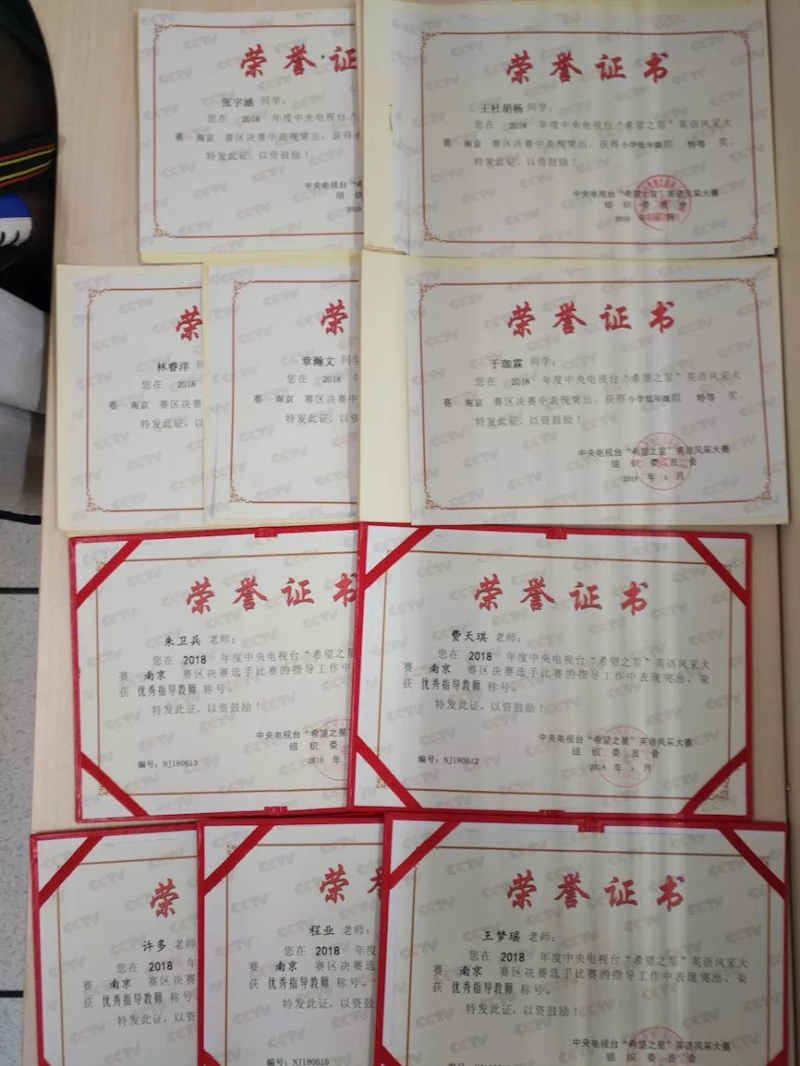 荣誉证
张宇涵 同学：
您在 2018 年度中央电视台“
赛 南京 赛区决赛中表现突出，获得小
特发此证，以资鼓励！
中央电视台“
组织
2018
荣誉证书
王杜胡杨 同学：
您在 2018 年度中央电视台“希望之星”英语风采大
赛 南京 赛区决赛中表现突出，获得小学低年级组 特等 奖。
特发此证，以资鼓励！
中央电视台“希望之星”英语风采大赛
组织委员会
2018 年 月
荣
林睿洋 同
您在 2018
赛 南京 赛区决赛
特发此证，以
荣
章瀚文 同学
您在 2018 年
赛 南京 赛区决赛中
特发此证，以
荣誉证书
于珈霖 同学：
您在 2018 年度中央电视台“希望之星”英语风采大
赛 南京 赛区决赛中表现突出，获得小学低年级组 特等 奖。
特发此证，以资鼓励！
中央电视台“希望之星”英语风采大赛
组织委员会
2018 年 月
荣誉证书
朱卫兵 老师：
您在 2018 年度中央电视台“希望之星
赛 南京 赛区决赛选手比赛的指导工作中
获 优秀指导教师 称号。
特发此证，以资鼓励！
中央电视台“希望之星
组织委
编号：NJ180613 2018 年
荣誉证书
费天琪 老师：
您在 2018 年度中央电视台“希望之星”英语风采大
赛 南京 赛区决赛选手比赛的指导工作中表现突出，荣
获 优秀指导教师 称号。
特发此证，以资鼓励！
中央电视台“希望之星”英语风采大赛
组织委员会
编号：NJ180612 2018 年 月
荣
许多 老师
您在 2018 年
赛 南京 赛区决
获 优秀指导教师
特发此证，以资
荣誉
程业 老师：
您在 2018 年度
赛 南京 赛区决赛选
获 优秀指导教师 称号。
特发此证，以资鼓
编号：NJ180615
荣誉证书
王梦瑶 老师：
您在 2018 年度中央电视台“希望之星”英语风采大
赛 南京 赛区决赛选手比赛的指导工作中表现突出，荣
获 优秀指导教师 称号。
特发此证，以资鼓励！
中央电视台“希望之星”英语风采大赛
组织委员会